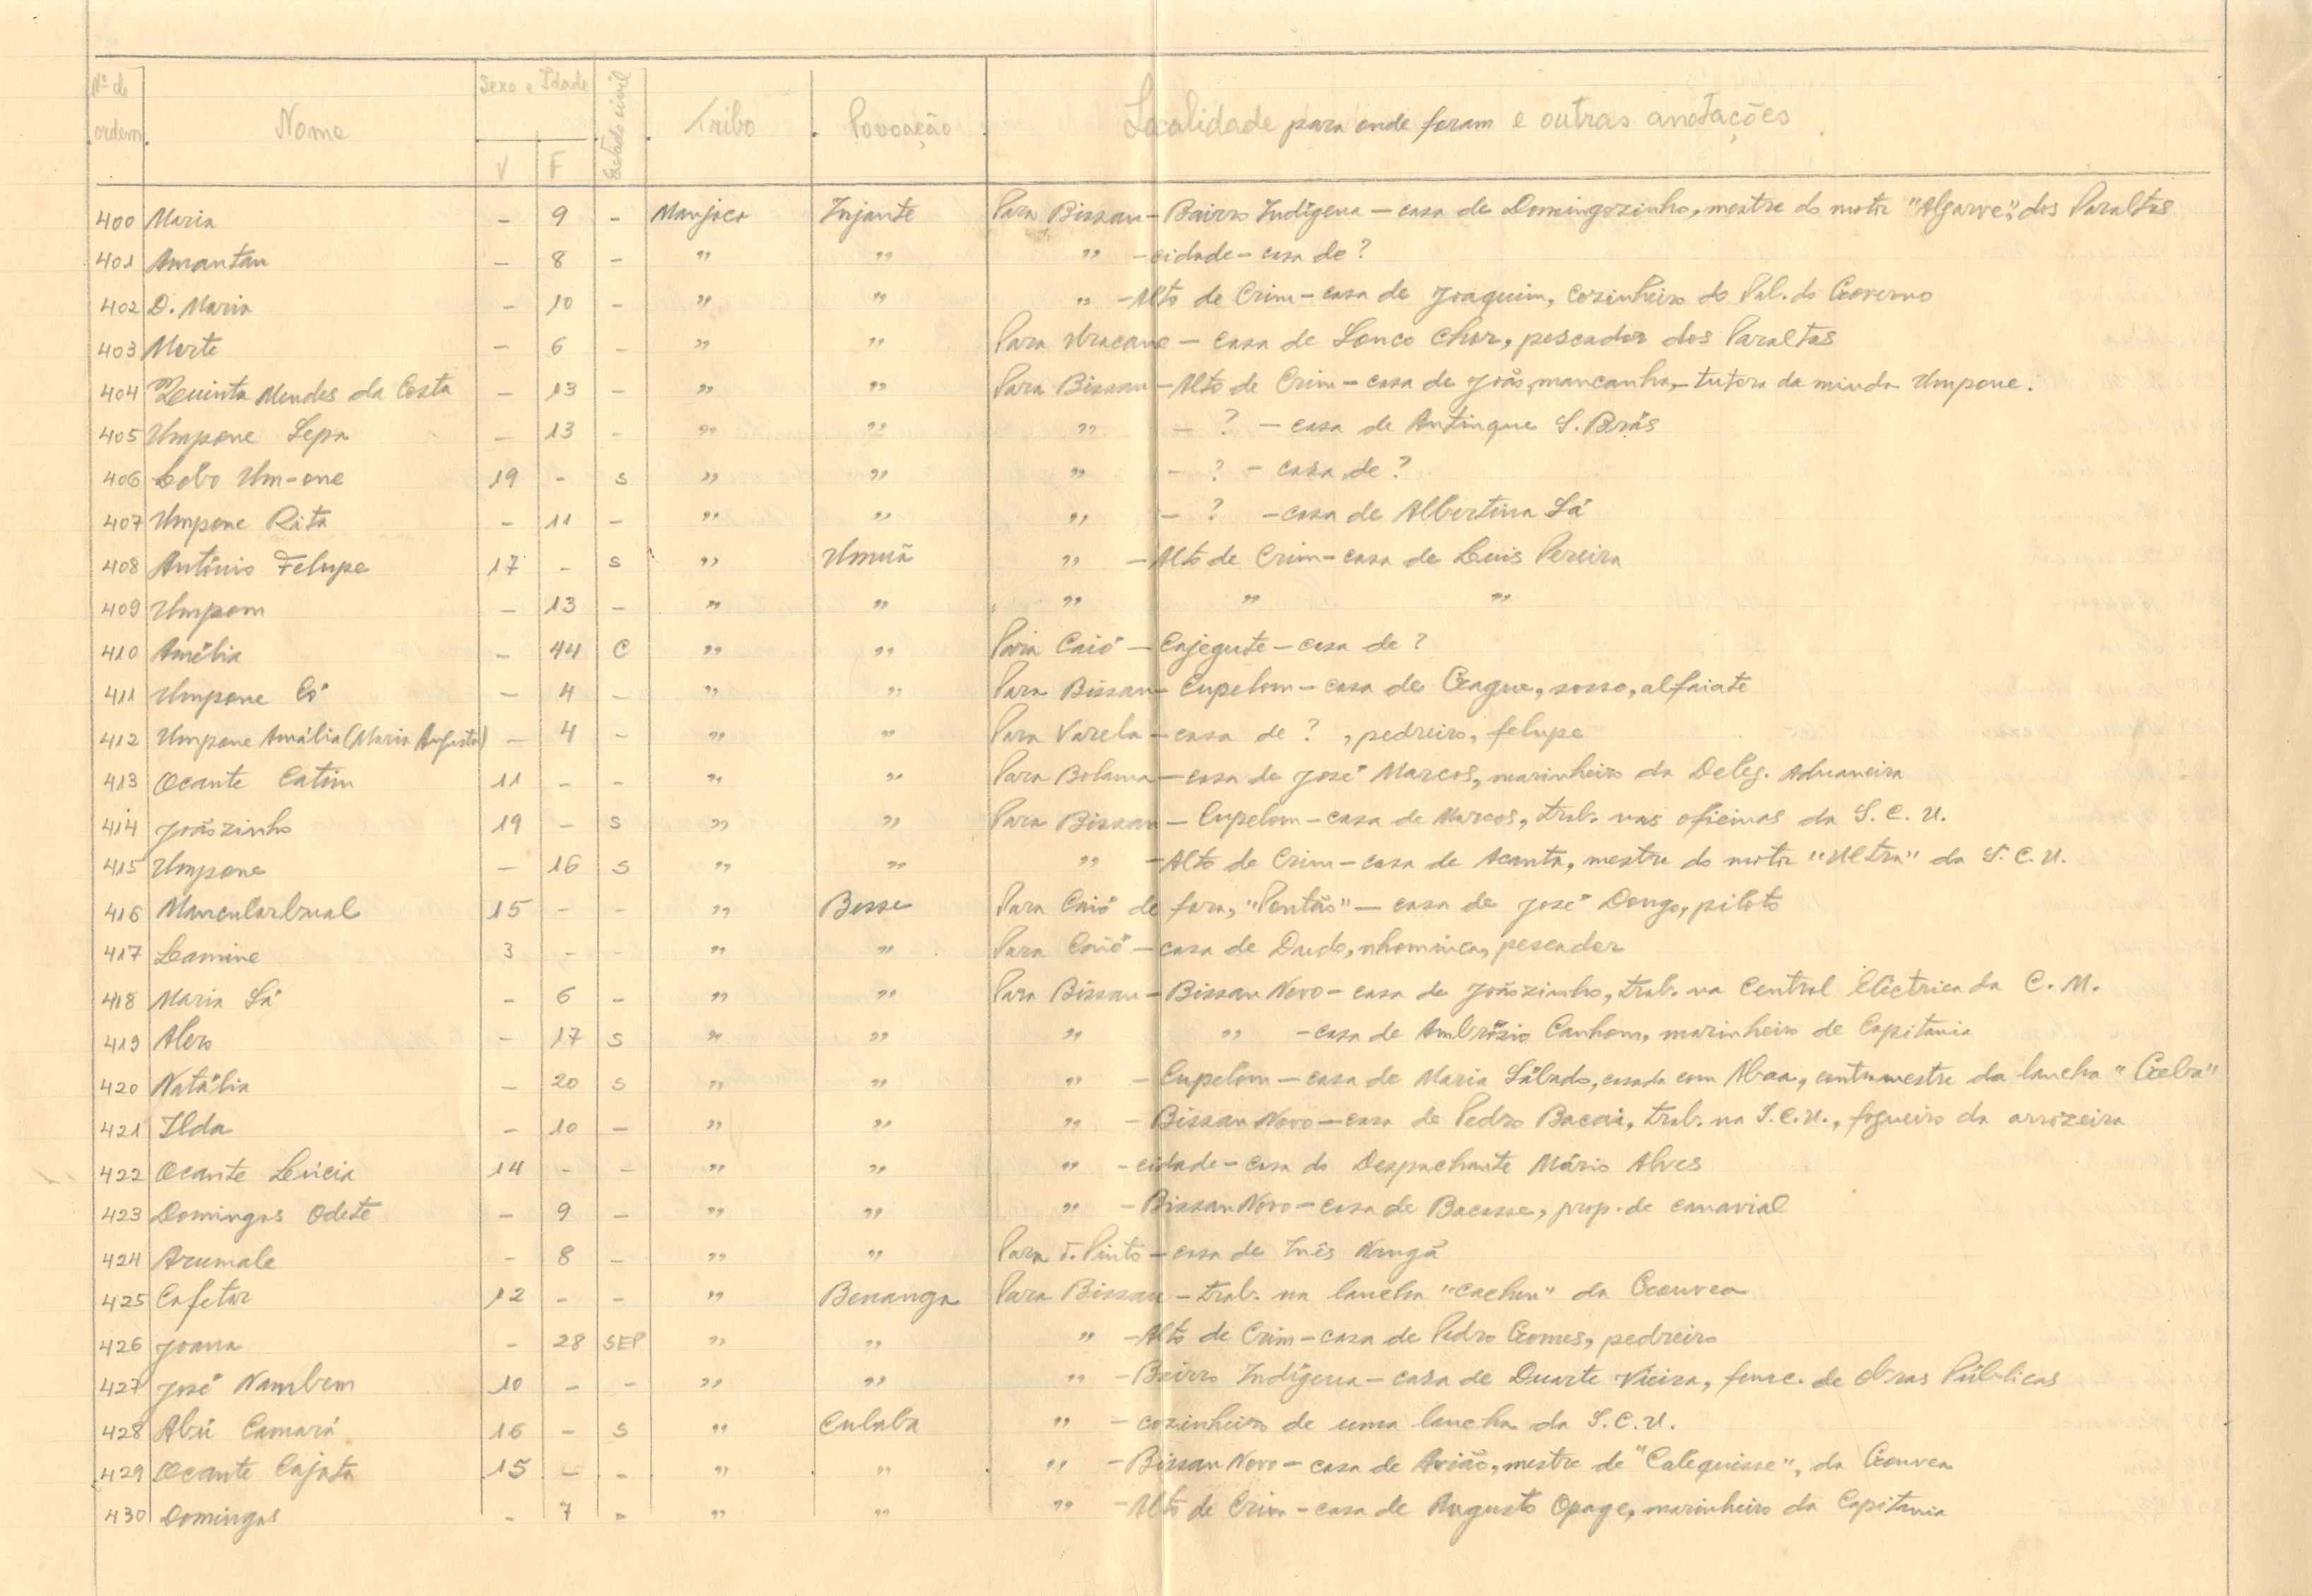 Nº de ordem Nome Sexo e Idade V F Estado civil Tribo Povoação Localidade para onde foram e outras anotações
400 Maria - 9 - Manjaco Injante Para Bissau - Bairro Indígena - casa de Domingozinho, mestre do motor "Algarve", dos Paraltas
401 Amantau - 8 - " " " - cidade - casa de ?
402 D. Maria - 10 - " " " - Alto de Crim - casa de Joaquim, cozinheiro do Pal. do Governo
403 Morte - 6 - " " Para Uracane - casa de Lonco Chor, pescador dos Paraltas
404 Quinta Mendes da Costa - 13 - " " Para Bissau - Alto de Crim - casa de João, mancanha, tutora da miuda Umpone.
405 Umpone Sepa - 13 - " " " - ? - casa de Antinque S. Brás
406 Lobo Um-one 19 - s " " " - ? - casa de ?
407 Umpone Rita - 11 - " " " - ? - casa de Albertina Sá
408 António Felupe 17 - s " Umuã " - Alto de Crim - casa de Luis Pereira
409 Umpom - 13 - " " " " "
410 Amélia - 44 C " " Para Caió - Cajegute - casa de ?
411 Umpone Có - 4 - " " Para Bissau - Cupelom - casa de Gague, sosso, alfaiate
412 Umpone Amália (Maria Augusta) - 4 - " " Para Varela - casa de ? , pedreiro, felupe
413 Ocante Catim 11 - - " " Para Bolama - casa de José Marcos, marinheiro da Deleg. Aduaneira
414 Joãozinho 19 - s " " Para Bissau - Cupelom - casa de Marcos, trab. nas oficinas da S. C. U.
415 Umpone - 16 s " " " - Alto de Crim - casa de Acanta, mestre do motor "Ultra" da S. C. U.
416 15 - - " Besse Para Caió de fora, "Pontão" - casa de José Dongo, piloto
417 Lamine 3 - - " " Para Caió - casa de Dudo, nhominca, pescador
418 Maria Sá - 6 - " " Para Bissau - Bissau Novo - casa de Joãozinho, trab. na Central Eléctrica da C. M.
419 Alero - 17 s " " " " - casa de Ambrósio Canhom, marinheiro de Capitania
420 Natália - 20 s " " " - Cupelom - casa de Maria Sábado, casada com Abaa, contramestre da lancha "Geba"
421 Ilda - 10 - " " " - Bissau Novo - casa de Pedro Bacai, trab. na S.C.U., fogueiro da arrozeira
422 Ocante Lúcia 14 - - " " " - cidade - casa do Despachante Mário Alves
423 Domingas Odete - 9 - " " " - Bissau Novo - casa de Bacasse, prop. de canavial
424 Arumale - 8 - " " Para T. Pinto - casa de Inês Nangã
425 Cafetar 12 - - " Benanga Para Bissau - trab. na lancha "Cacheu" da Gouvea
426 Joana - 28 SEP " " " - Alto de Crim - casa de Pedro Gomes, pedreiro
427 José Nambem 10 - - " " " - Bairro Indígena - casa de Duarte Vieira, func. de Obras Públicas
428 Abú Camará 16 - s " Culaba " - cozinheiro de uma lancha da S.C.U.
429 Ocante Cajata 15 - - " " " - Bissau Novo - casa de Avião, mestre de "Calequisse", da Gouvea
430 Domingas - 7 - " " " - Alto de Crim - casa de Augusto Opage, marinheiro da Capitania